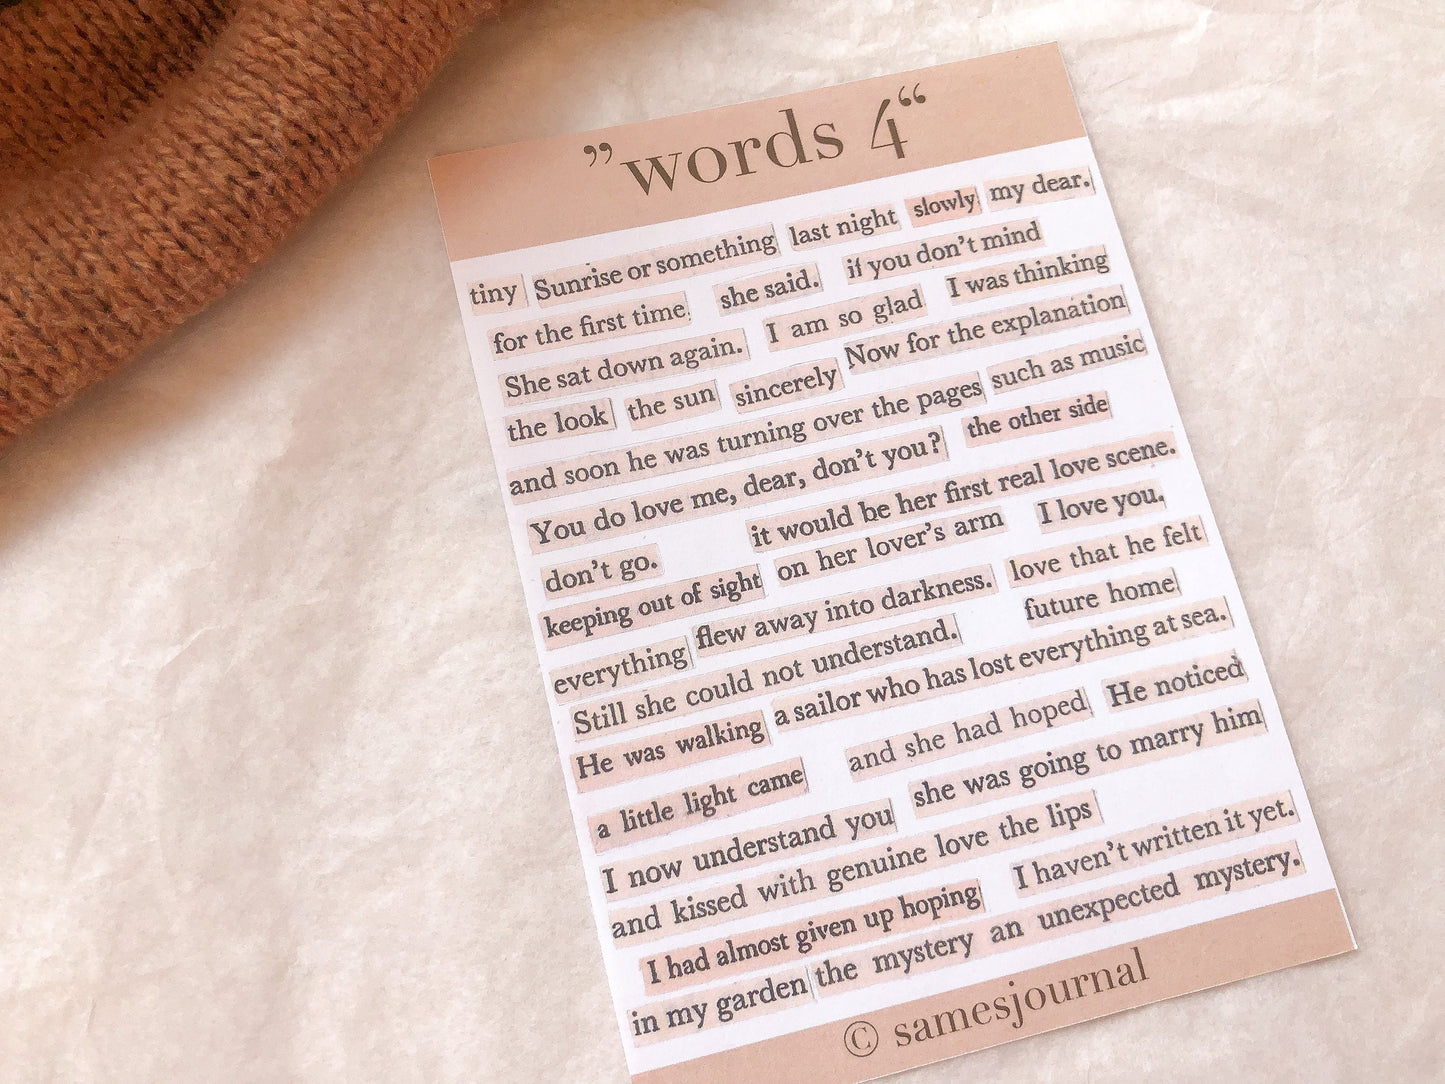 ”words 4“
tiny Sunrise or something last night slowly my dear.
for the first time she said. if you don't mind
She sat down again. I am so glad I was thinking
the look the sun sincerely Now for the explanation
and soon he was turning over the pages such as music
You do love me, dear, don't you? the other side
don't go. it would be her first real love scene.
keeping out of sight on her lover's arm I love you.
everything flew away into darkness. love that he felt
Still she could not understand. future home
He was walking a sailor who has lost everything at sea.
a little light came and she had hoped He noticed
I now understand you she was going to marry him
and kissed with genuine love the lips
I had almost given up hoping I haven't written it yet.
in my garden the mystery an unexpected mystery.
© samesjournal